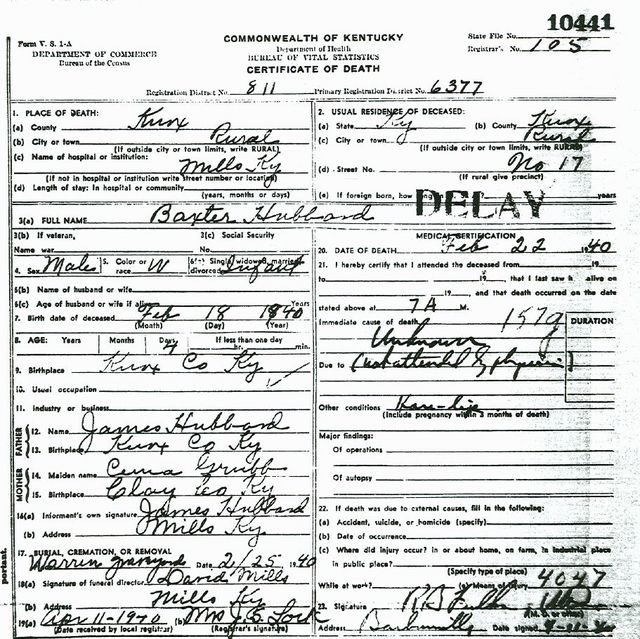 10441
Form V. S. 1-A
DEPARTMENT OF COMMERCE
Bureau of the Census
COMMONWEALTH OF KENTUCKY
Department of Health
BUREAU OF VITAL STATISTICS
CERTIFICATE OF DEATH
State File No.
Registrar's No. 105
Registration District No. 811 Primary Registration District No. 6377
1. PLACE OF DEATH:
(a) County Knox
(b) City or town Rural
(If outside city or town limits, write RURAL)
(c) Name of hospital or institution:
Mills Ky
(If not in hospital or institution write street number or location)
(d) Length of stay: In hospital or community
(years, months or days)
2. USUAL RESIDENCE OF DECEASED:
(a) State Ky (b) County Knox
(c) City or town Rural
(If outside city or town limits, write RURAL)
(d) Street No. No 17
(If rural give precinct)
(e) If foreign born, how long years
DELAY
3(a) FULL NAME Baxter Hubbard
3(b) If veteran, 3(c) Social Security
Name war No.
4. Sex Males 5. Color or race W 6(a) Single, widowed, married, divorced Infant
6(b) Name of husband or wife
6(c) Age of husband or wife if alive Years
7. Birth date of deceased Feb 18 1940
(Month) (Day) (Year)
8. AGE: Years Months Days 4 If less than one day
hr. min.
9. Birthplace Knox Co Ky
10. Usual occupation
11. Industry or business
FATHER
12. Name James Hubbard
13. Birthplace Knox Co Ky
MOTHER
14. Maiden name Grubb
15. Birthplace Clay Co Ky
16(a) Informant's own signature James Hubbard
(b) Address Mills Ky
17. BURIAL, CREMATION, OR REMOVAL
Warren graveyard Date 2/25 1940
18(a) Signature of funeral director David Mills
(b) Address Mills Ky
19(a) Apr 11-1940 (b) Mrs J.E. Lock
(Date received by local registrar) (Registrar's signature)
MEDICAL CERTIFICATION
20. DATE OF DEATH Feb 22 1940
21. I hereby certify that I attended the deceased from 19
to 19, that I last saw h alive on
19, and that death occurred on the date
stated above at 7A M.
Immediate cause of death 157g
DURATION
Unknown
Due to (not attended by physician)
Other conditions Hare-lip
(Include pregnancy within 3 months of death)
Major findings:
Of operations
Of autopsy
22. If death was due to external causes, fill in the following:
(a) Accident, suicide, or homicide (specify)
(b) Date of occurrence
(c) Where did injury occur? in or about home, on farm, in industrial place
in public place?
(Specify type of place)
While at work? (e) Means of injury 4047
23. Signature
(M. D. or other)
Address Barbourville Date signed
portant.